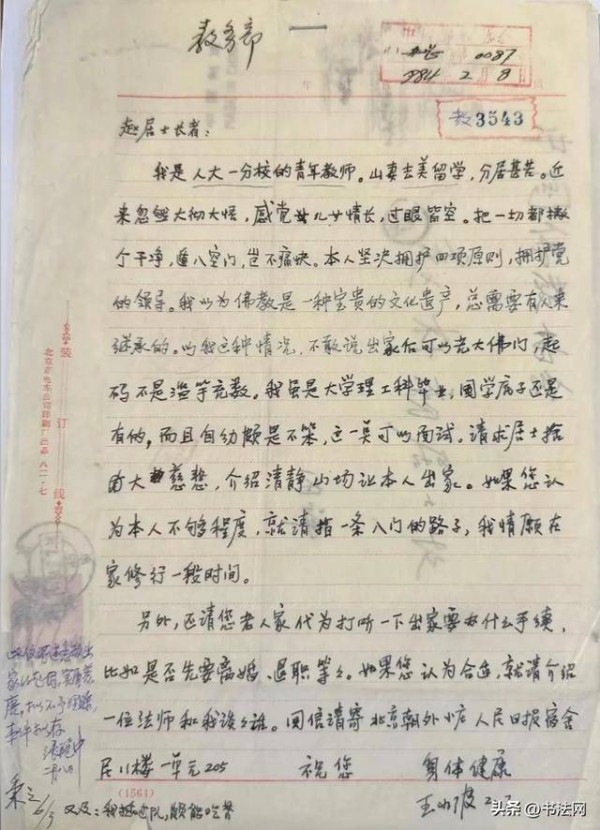 教务部
0087
1984 2月8日
教3543
赵居士长者：
我是人大一分校的青年教师。山妻去美留学，分居甚苦。近
来忽然大彻大悟，感觉女儿情长，过眼皆空。把一切都撇
个干净，遁入空门，岂不痛快。本人坚决拥护四项原则，拥护党
的领导。我以为佛教是一种宝贵的文化遗产，总需要有人来
继承的。以我这种情况，不敢说出家后可以光大佛门，起
码不是滥竽充数。我虽是大学理工科毕业，国学底子还是
有的，而且自幼颇是不笨，这一点可以面试。请求居士捨
大慈悲，介绍清静山场让本人出家。如果您认
为本人不够程度，就请指一条入门的路子，我情愿在
家修行一段时间。
另外，还请您老人家代为打听一下出家要办什么手续，
比如是否先要离婚、退职等等。如果您认为合适，就请介绍
一位法师和我谈谈。回信请寄北京朝外小庄人民日报宿舍
尼11楼一单元205 祝您 身体健康
王小波
又及：我插过队，颇能吃苦
(1564)
装订线
北京市电车公司印刷厂出品 八二·七
二月八日
6/3
头条 @书法网